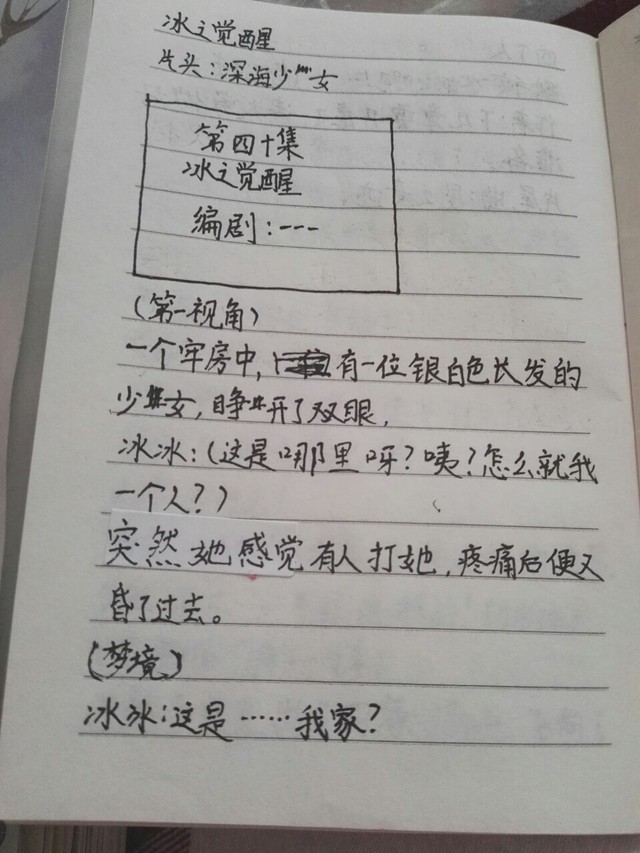 冰之觉醒
片头：深海少女
第四十集
冰之觉醒
编剧：---
（第一视角）
一个牢房中，有一位银白色长发的
少女，睁开了双眼，
冰冰：（这是哪里呀？咦？怎么就我
一个人？）
突然她感觉有人打她，疼痛后便又
昏了过去。
（梦境）
冰冰：这是……我家？